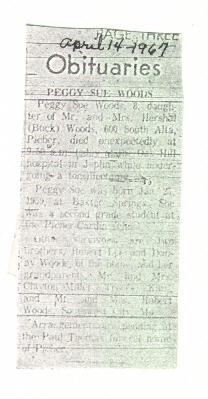 PAGE THREE
April 14-1967
Obituaries
PEGGY SUE WOODS
Peggy Sue Woods, 8, daugh-
ter of Mr. and Mrs. Hershal
(Buck) Woods, 600 South Alta,
Picher, died unexpectedly at
hospital at Joplin while under-
going a tonsillectomy.
Peggy Sue was born Jan. 25,
1959, at Baxter Springs. She
was a second grade student at
the Picher-Cardin
survivors are two
brothers, Robert Lee and
Woods, of the home, and her
grandparents, Mr. and Mrs.
Clayton
and Mr. and Mrs. Robert
Woods, Southwest City, Mo.
Arrangements are pending at
the Paul Thomas funeral home
of Picher.